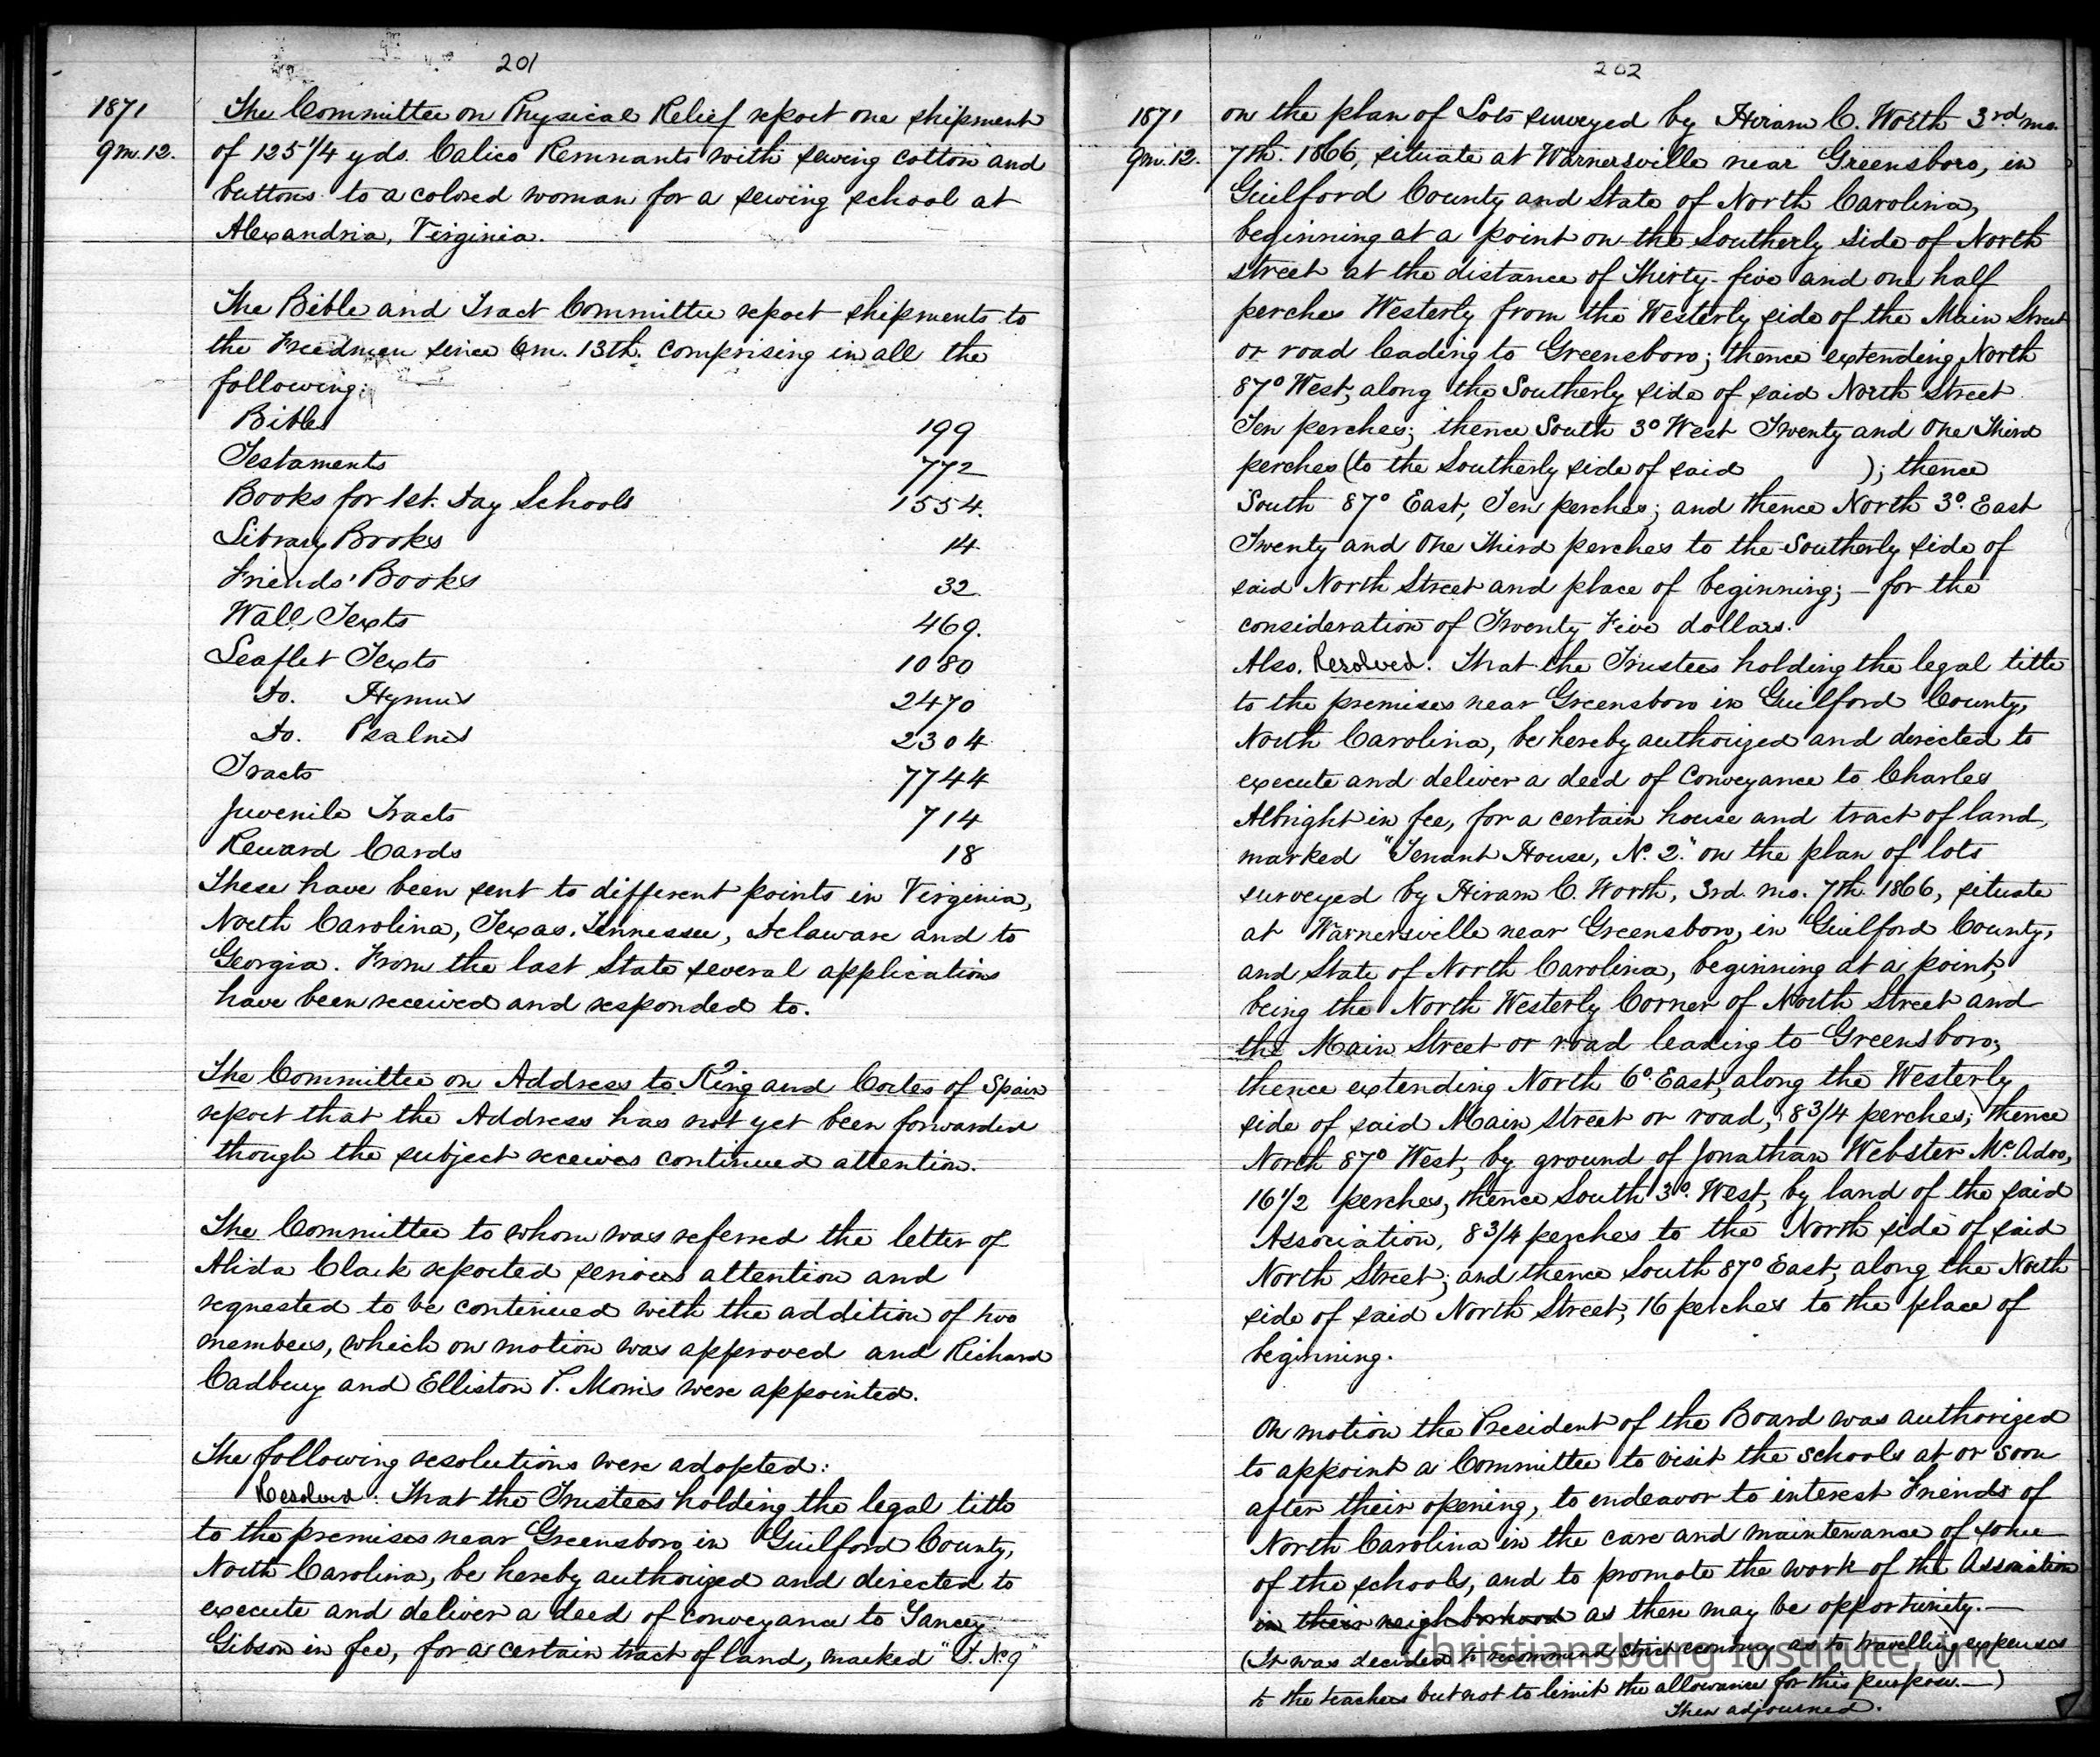 201
1871
9m.12.
The Committee on Physical Relief report one shipment
of 125 1/4 yds. Calico Remnants with sewing cotton and
buttons to a colored woman for a sewing school at
Alexandria, Virginia.
The Bible and Tract Committee report shipments to
the Freedmen since 6m. 13th. comprising in all the
following:
Bibles 199
Testaments 772
Books for 1st. Day Schools 1554.
Library Books 14
Friends' Books 32
Wall Texts 469.
Leaflet Texts 1080
Do. Hymns 2470
Do. Psalms 2304
Tracts 7744
Juvenile Tracts 714
Reward Cards 18
These have been sent to different points in Virginia,
North Carolina, Texas, Tennessee, Delaware and to
Georgia. From the last State several applications
have been received and responded to.
The Committee on Address to King and Cortes of Spain
report that the Address has not yet been forwarded
though the subject receives continued attention.
The Committee to whom was referred the letter of
Alida Clark reported serious attention and
requested to be continued with the addition of two
members, which on motion was approved and Richard
Cadbury and Elliston P. Morris were appointed.
The following resolutions were adopted:
Resolved: That the Trustees holding the legal title
to the premises near Greensboro in Guilford County,
North Carolina, be hereby authorized and directed to
execute and deliver a deed of conveyance to Yancey
Gibson in fee, for a certain tract of land, marked "L. No 9"
202
1871
9m.12.
on the plan of Lots surveyed by Hiram C. Worth 3rd mo.
7th. 1866, situate at Warnersville near Greensboro, in
Guilford County and State of North Carolina,
beginning at a point on the Southerly side of North
street at the distance of Thirty-five and one half
perches Westerly from the Westerly side of the Main Street
or road leading to Greensboro; thence extending North
87° West, along the Southerly side of said North Street
Ten perches; thence South 3° West Twenty and One Third
perches (to the Southerly side of said ); thence
South 87° East, Ten perches; and thence North 3° East
Twenty and One Third perches to the Southerly side of
said North Street and place of beginning; — for the
consideration of Twenty Five dollars.
Also, Resolved: That the Trustees holding the legal title
to the premises near Greensboro in Guilford County,
North Carolina, be hereby authorized and directed to
execute and deliver a deed of Conveyance to Charles
Albright in fee, for a certain house and tract of land,
marked "Tenant House, No. 2." on the plan of lots
surveyed by Hiram C. Worth, 3rd. mo. 7th. 1866, situate
at Warnersville near Greensboro, in Guilford County,
and State of North Carolina, beginning at a point,
being the North Westerly Corner of North Street and
the Main Street or road leading to Greensboro;
thence extending North 6° East, along the Westerly
side of said Main Street or road, 8 3/4 perches; thence
North 87° West, by ground of Jonathan Webster McAdoo,
16 1/2 perches, thence South 3° West, by land of the said
Association, 8 3/4 perches to the North side of said
North Street; and thence South 87° East, along the North
side of said North Street, 16 perches to the place of
beginning.
On motion the President of the Board was authorized
to appoint a Committee to visit the schools at or soon
after their opening, to endeavor to interest Friends of
North Carolina in the care and maintenance of some
of the schools, and to promote the work of the Association
in their neighborhood as there may be opportunity. —
(It was decided to recommend strict economy as to travelling expenses
to the teachers but not to limit the allowance for this purpose. —)
Then adjourned.
Christiansburg Institute, Inc